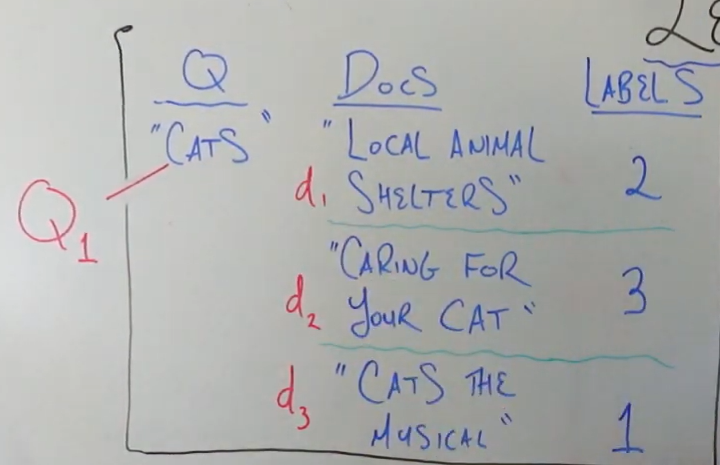 Q Docs LABELS
"CATS" "LOCAL ANIMAL
d1 SHELTERS" 2
Q1
"CARING FOR
d2 YOUR CAT" 3
d3 "CATS THE
MUSICAL" 1